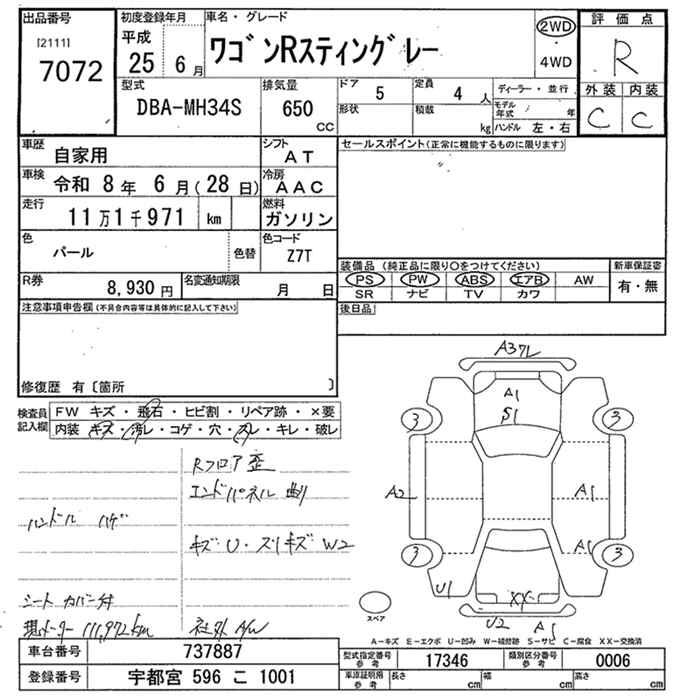 出品番号
[2111]
7072
初度登録年月
平成
25 6月
車名・グレード
ワゴンRスティングレー
2WD
・
4WD
評価点
R
外装 内装
C C
型式
DBA-MH34S
排気量
650
cc
ドア
5
形状
定員
4 人
積載
kg
ディーラー・並行
モデル年式 年
ハンドル 左・右
車歴
自家用
シフト
AT
車検
令和 8年 6月(28日)
冷房
AAC
走行
11万1千971 km
燃料
ガソリン
色
パール
色替
色コード
Z7T
R券
8,930円
名変通知期限
月 日
セールスポイント(正常に機能するものに限ります)
装備品 (純正品に限り○をつけてください)
PS PW ABS エアB AW
SR ナビ TV カワ
新車保証書
有・無
後日品
注意事項申告欄(不具合内容等は具体的に記入して下さい)
修復歴 有〔箇所 〕
検査員
記入欄
FW キズ・飛石・ヒビ割・リペア跡・×要
内装 キズ・汚レ・コゲ・穴・スレ・キレ・破レ
Rフロア歪
エンドパネル曲り
ハンドル ハゲ
キズ U・スリキズ W2
シート カバー付
現メーター 111,972km
社外 A/W
A37L
A1
S1
3 3
A2 A1
A1
3 3
U1
XX
U2 A1
スペア
A-キズ E-エクボ U-凹み W-補修跡 S-サビ C-腐食 XX-交換済
車台番号
737887
登録番号
宇都宮 596 こ 1001
型式指定番号
参考
17346
類別区分番号
参考
0006
車庫証明用
参考
長さ cm
幅 cm
高さ cm